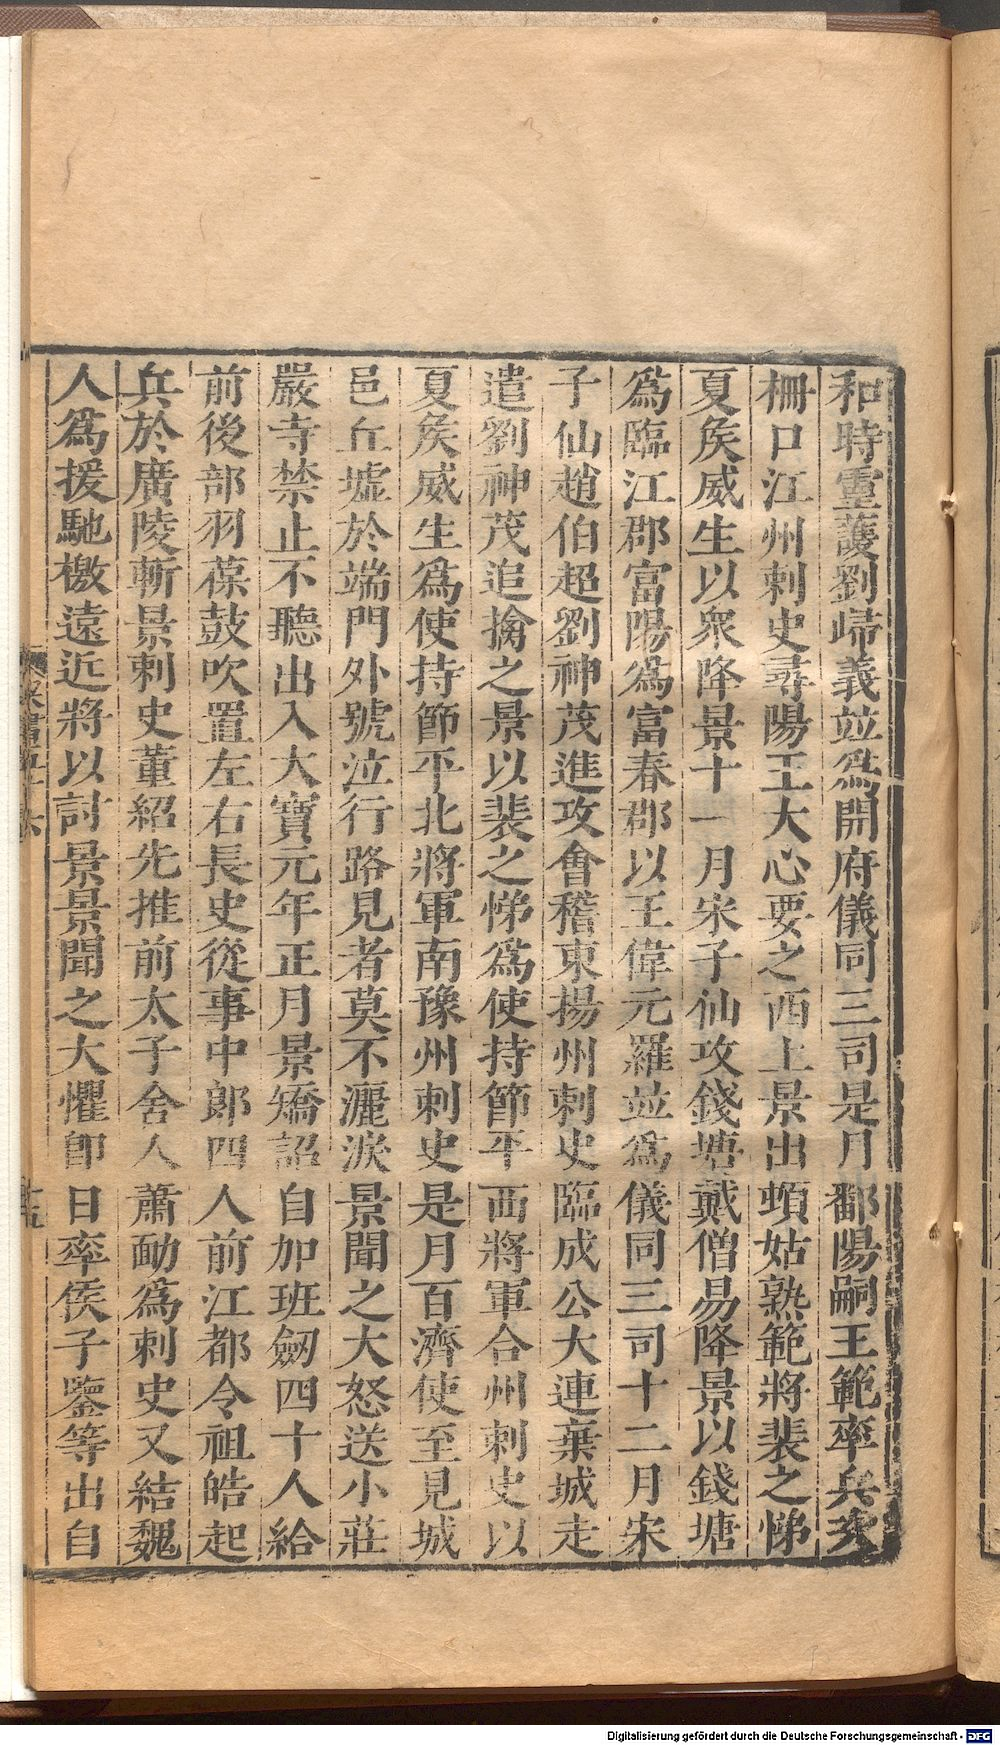 和時靈護劉歸義並爲開府儀同三司是月鄱陽嗣王範率兵次
柵口江州刺史尋陽王大心要之西上景出頓姑熟範將裴之悌
夏矦威生以衆降景十一月宋子仙攻錢塘戴僧易降景以錢塘
爲臨江郡富陽爲富春郡以王偉元羅並爲儀同三司十二月宋
子仙趙伯超劉神茂進攻會稽東揚州刺史臨成公大連棄城走
遣劉神茂追擒之景以裴之悌爲使持節平西將軍合州刺史以
夏矦威生爲使持節平北將軍南豫州刺史是月百濟使至見城
邑丘墟於端門外號泣行路見者莫不灑淚景聞之大怒送小莊
嚴寺禁止不聽出入大寶元年正月景矯詔自加班劒四十人給
前後部羽葆鼓吹置左右長史從事中郎四人前江都令祖皓起
兵於廣陵斬景刺史董紹先推前太子舍人蕭勔爲刺史又結魏
人爲援馳檄遠近將以討景景聞之大懼卽日率侯子鑒等出自
十五
Digitalisierung gefördert durch die Deutsche Forschungsgemeinschaft - DFG